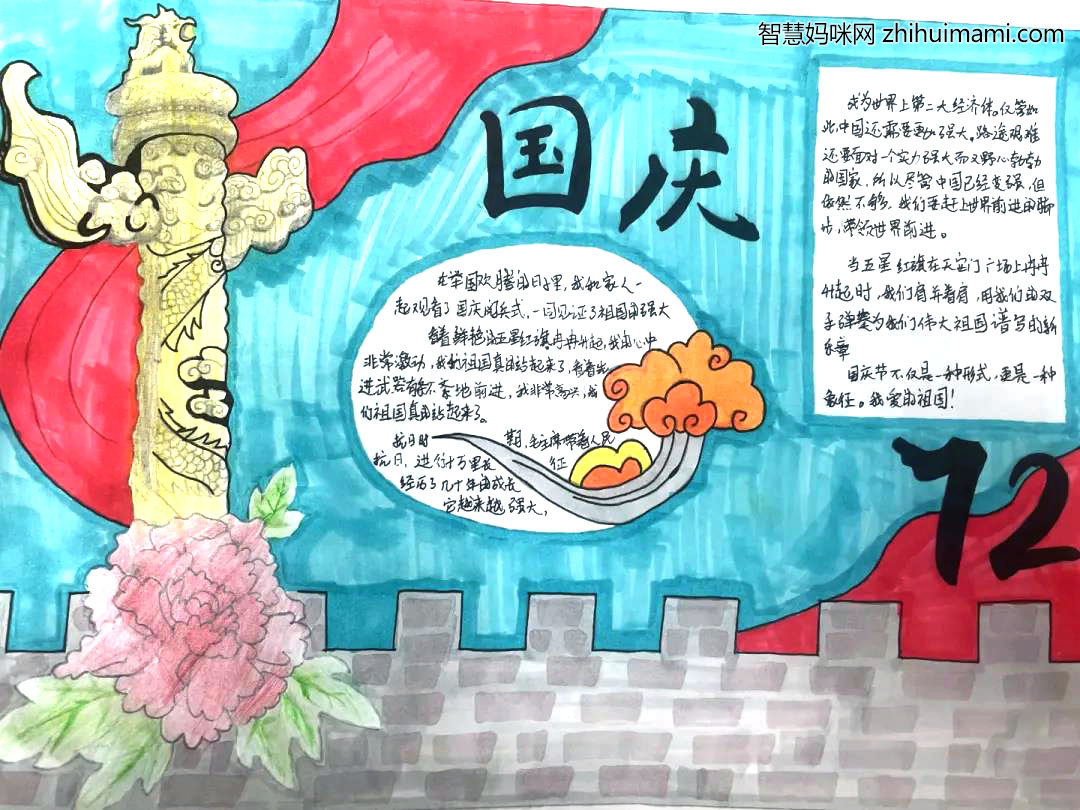 智慧妈咪网 zhihuimami.com
国庆
在举国欢腾的日子里,我和家人一
起观看了国庆阅兵式,一同见证了祖国的强大
看着鲜艳的五星红旗冉冉升起,我的心中
非常激动,我的祖国真的站起来了,看着先
进武器有条不紊地前进,我非常高兴,我
们祖国真的站起来了。
抗日时期,毛主席带着人民
抗日,进行十万里长征
经历了几十年的成长
它越来越强大,
成为世界上第二大经济体。仅管如
此,中国还需要更加强大。路途艰难
还要面对一个实力强大而又野心勃勃
的国家,所以尽管中国已经变强,但
依然不够,我们要赶上世界前进的脚
步,带领世界前进。
当五星红旗在天安门广场上冉冉
升起时,我们肩并着肩,用我们的双
手弹奏为我们伟大祖国谱写的新
乐章
国庆节不仅是一种形式,更是一种
象征。我爱的祖国!
72